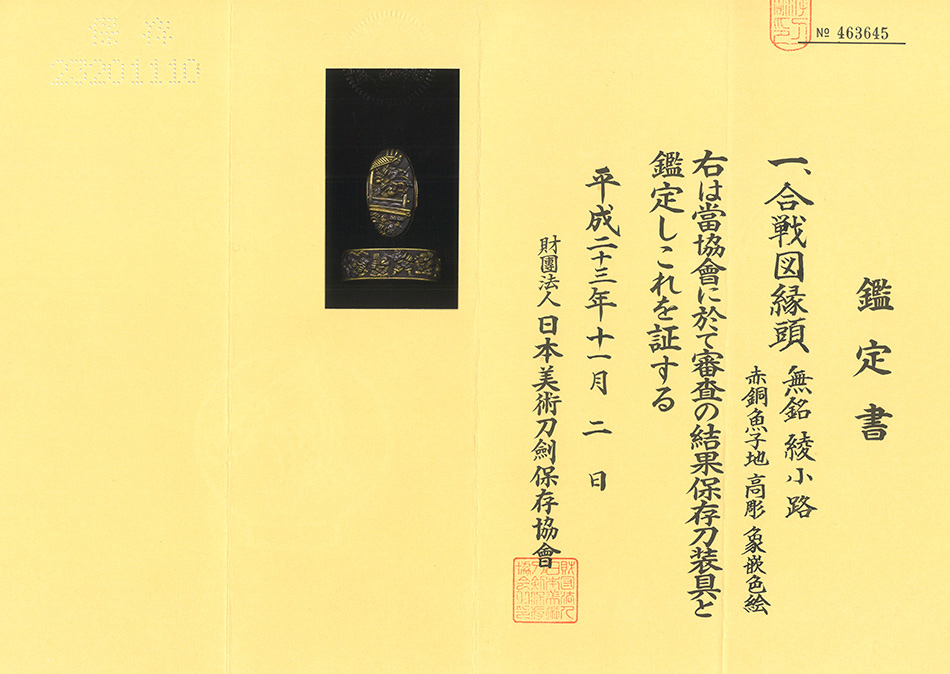 鑑定書
№ 463645
一、合戦図縁頭 無銘 綾小路
赤銅魚子地 高彫 象嵌色絵
右は當協會に於て審査の結果保存刀装具と
鑑定しこれを証する
平成二十三年十一月二日
財團法人 日本美術刀劍保存協會
保存
23201110